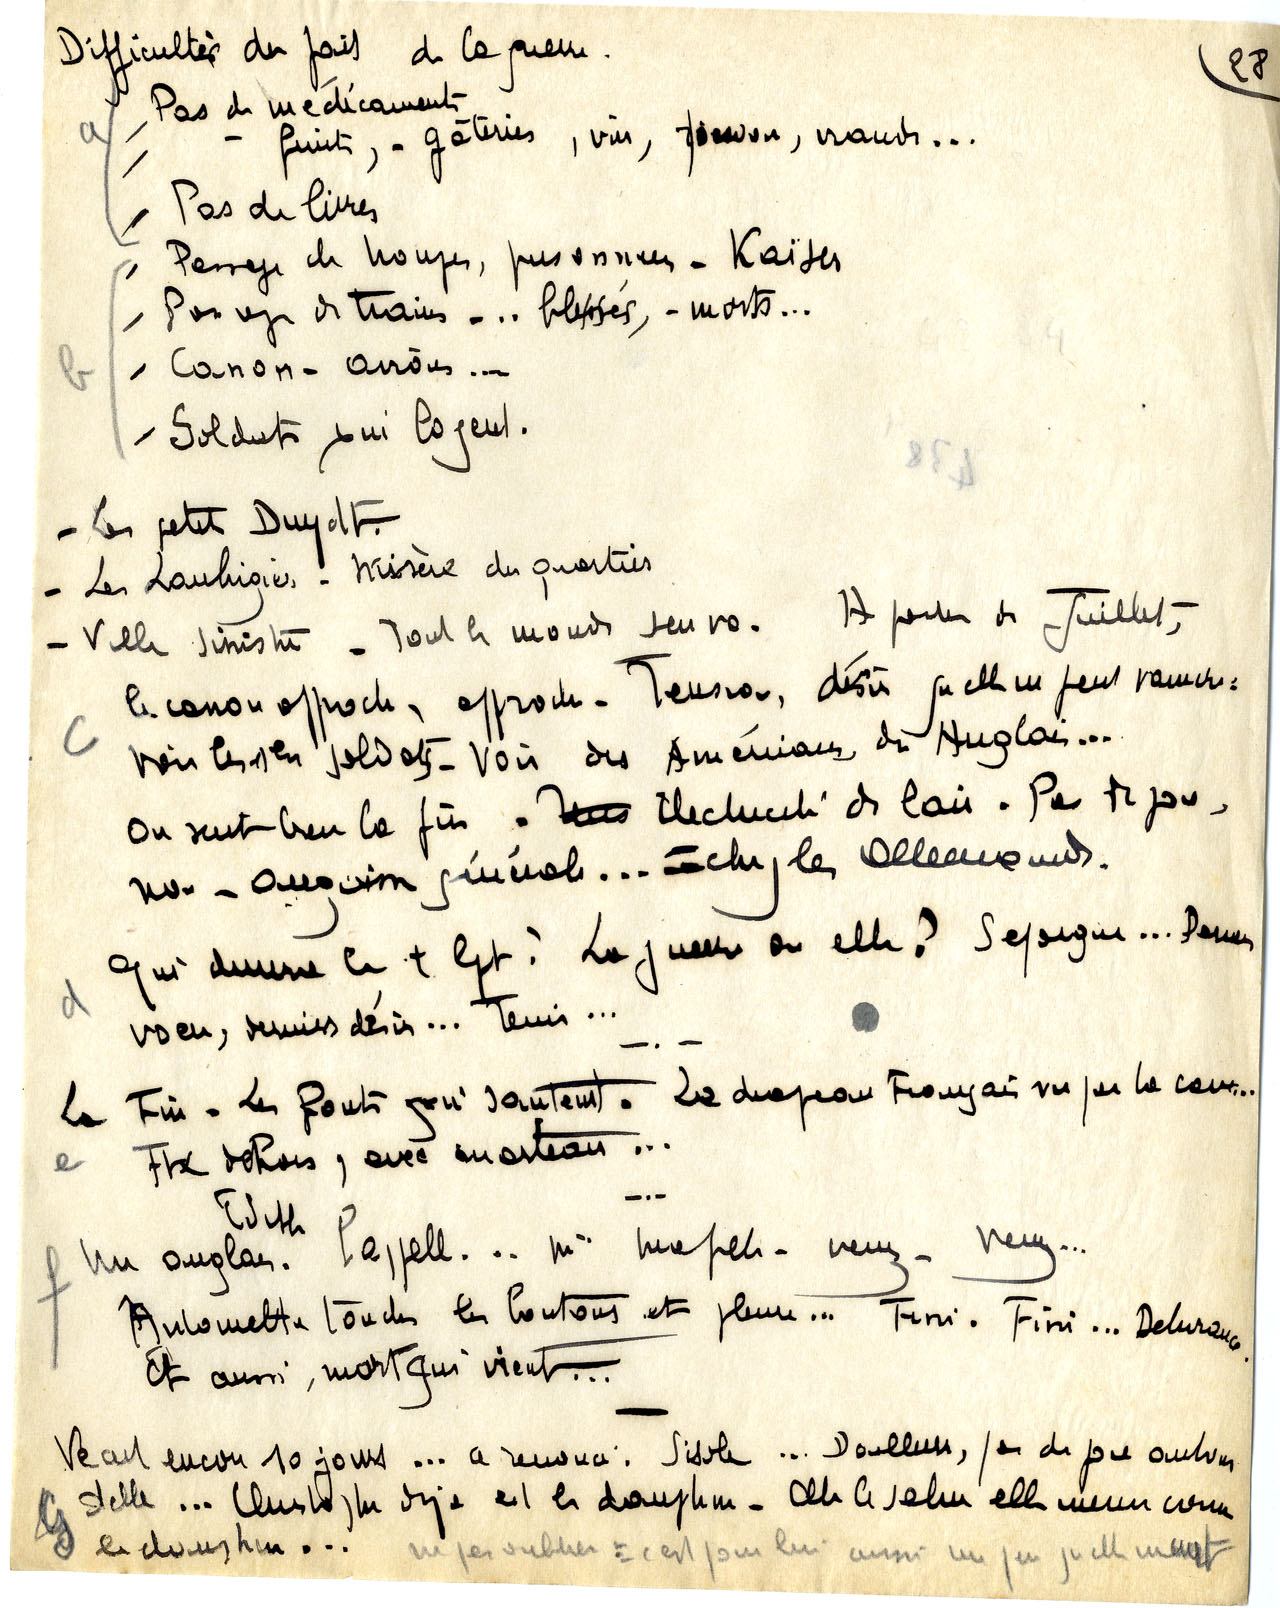 Difficultés du fait de la guerre.
28
a
Pas de médicaments
- fruits, - gâteries, vin, savon, viande...
Pas de livres
Passage de troupes, prisonniers - Kaiser
b
Passage de trains - .. blessés, - morts...
Canon - avions ...
Soldats qui logent.
- Les petits Duydt.
- Les - Misère du quartier
- Ville sinistre - Tout le monde s'en va. A partir de Juillet,
c
le canon approche, approche - Tension, désir qu'elle ne peut vaincre:
voir les soldats - Voir des Américains, des Anglais...
On sent bien la fin. Electricité de l'air. Pas de jour-
nax - angoisse générale... chez les Allemands.
d
Qui durera le + lgt? La guerre ou elle? S'épargne... Dernier
voeu, dernier désir... Tenir...
e
La Fin - Les Ponts qui sautent. Le drapeau Français vu par la cour...
Fix dehors, avec marteau...
Edith
f
Un anglais. L'appelle... venez - venez...
Antoinette touche les boutons et pleure... Fini. Fini... Délivrance.
Et aussi, mort qui vient...
G
Vécut encore 10 jours... a renoncé. Sisole... Douleur, pas de joie autour
d'elle... Christophe déjà est le dauphin - Elle le salue elle même comme
le dauphin... ne pas oublier = c'est pour lui aussi un peu qu'elle meurt